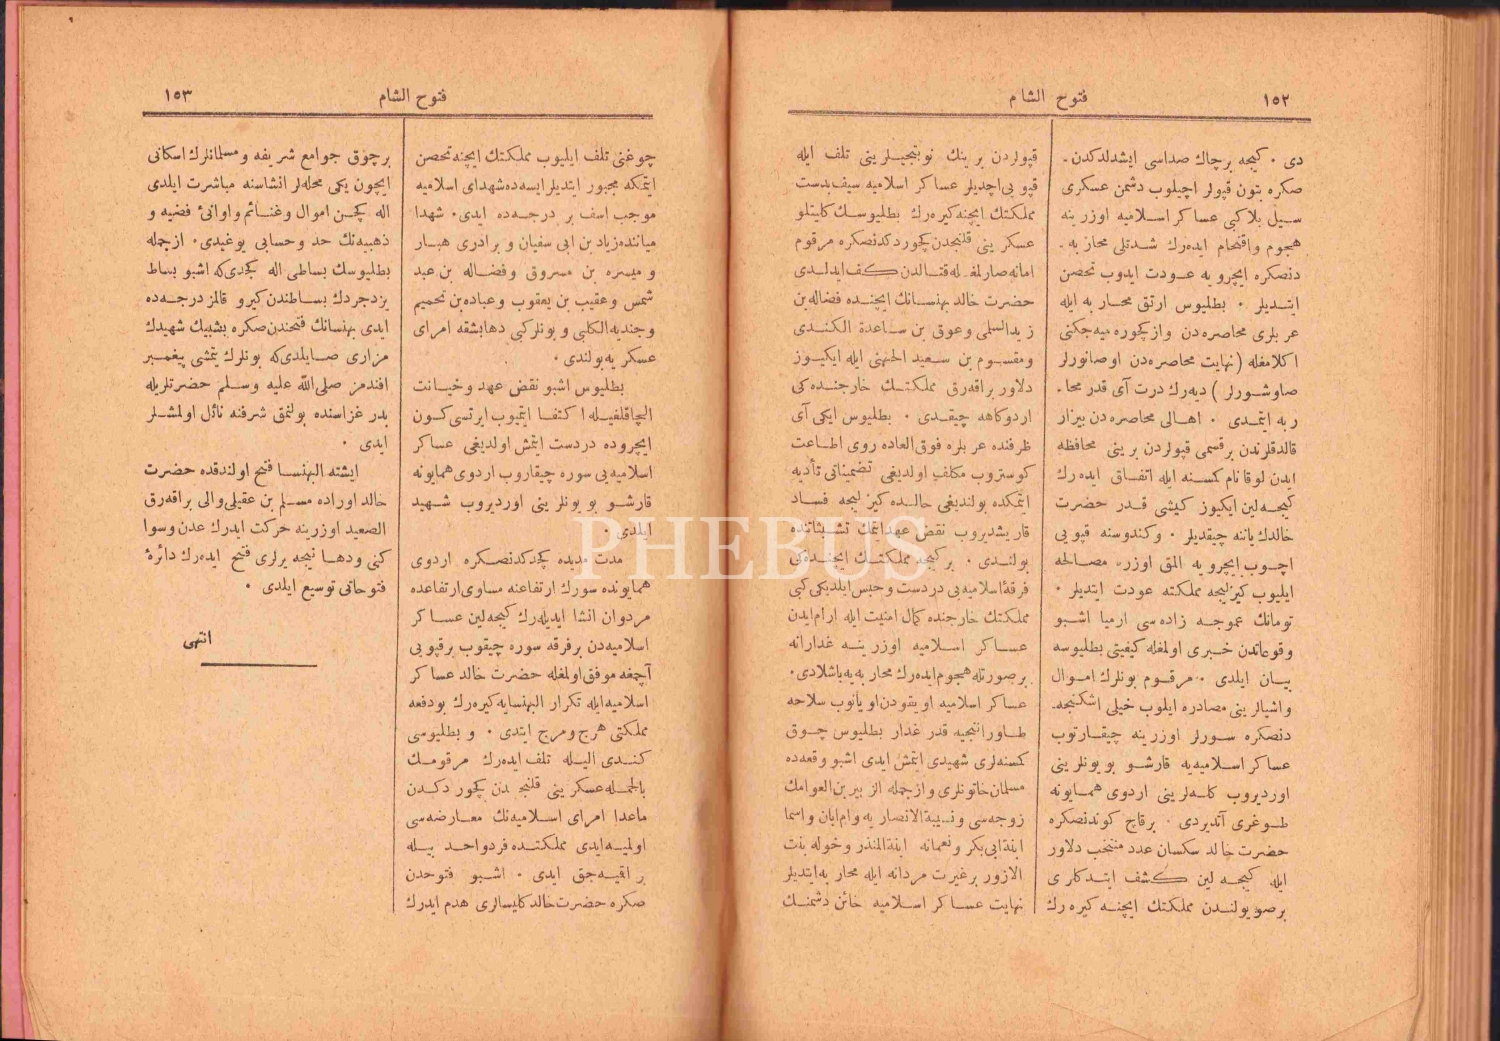 ١٥٢
فتوح الشام
دی ٠ كیجه برچاك صداسی ایشدلدكدن ـ
صكره بتون قپولر اچیلوب دشمن عسكری
سیل بلا كبی عساكر اسلامیه اوزرینه
هجوم واقتحام ایده‌رك شدتلی محاربه ـ
دنصكره ایچرو یه عودت ایدوب تحصن
ایتدیلر ٠ بطلیوس ارتق محاربه ایله
عربلری محاصره‌دن وازكچوره میه جكنی
اكلامغله (نهایت محاصره‌دن اوصانورلر
صاوشورلر) دیه‌رك درت آی قدر محا ـ
ربه ایتمدی ٠ اهالی محاصره‌دن بیزار
قالدقلرندن برقسمی قپولردن برینی محافظه
ایدن لوقا نام كمسنه ایله اتفاق ایده‌رك
كیجه‌لین ایكیوز كیشی قدر حضرت
خالدك یاننه چیقدیلر ٠ وكندوسنه قپویی
اچوب ایچرویه المق اوزره مصالحه
ایلیوب كیزلیجه مملكته عودت ایتدیلر ٠
تومانك عموجه زاده‌سی ارمیا اشبو
وقوعاتدن خبری اولمغله كیفیتی بطلیوسه
بیان ایلدی ٠ مرقوم بونلرك اموال
واشیالرینی مصادره ایلوب خیلی اشكنجه ـ
دنصكره سورلر اوزرینه چیقارتوب
عساكر اسلامیه‌یه قارشو بویونلرینی
اوردیروب كله‌لرینی اردوی همایونه
طوغری آتدیردی ٠ برقاچ كوندنصكره
حضرت خالد سكسان عدد منتخب دلاور
ایله كیجه لین كشف ایتدكلری
برصو یولندن مملكتك ایچنه كیره‌رك
قپولردن برینك نوبتجیلرینی تلف ایله
قپویی اچدیلر عساكر اسلامیه سیف بدست
مملكتك ایچنه كیره‌رك بطلیوسك كلیتلو
عسكرینی قلیجدن كچوردكدنصكره مرقوم
امانه صارلمغله قتالدن كف ایدلدی
حضرت خالد بهنسانك ایچنده فضاله بن
زیدالسلمی وعوق بن ساعدة الكندی
ومقسوم بن سعید الجهنی ایله ایكیوز
دلاور براقه‌رق مملكتك خارجنده‌كی
اردوكاهه چیقدی ٠ بطلیوس ایكی آی
ظرفنده عربلره فوق العاده روی اطاعت
كوستروب مكلف اولدیغی تضمیناتی تأدیه
ایتمكده بولندیغی حالده كیزلیجه فساد
قاریشدیروب نقض عهد ایتمك تشبثاتنده
بولندی ٠ بركیجه مملكتك ایچنده‌كی
فرقهٔ اسلامیه‌یی دردست وحبس ایلدیكی كبی
مملكتك خارجنده كمال امنیت ایله ارام ایدن
عساكر اسلامیه اوزرینه غدارانه
برصورتله هجوم ایده‌رك محاربه‌یه باشلادی ٠
عساكر اسلامیه اویقودن اویانوب سلاحه
طاورانجیه قدر غدار بطلیوس چوق
كمسنه‌لری شهید ایتمش ایدی اشبو وقعه‌ده
مسلمان خاتونلری وازجمله الزبیر بن العوامك
زوجه‌سی ونسیبة الانصاریه وام ابان واسما
ابنة ابی بكر ونعمانه ابنة المنذر وخوله بنت
الازور برغیرت مردانه ایله محاربه ایتدیلر
نهایت عساكر اسلامیه خائن دشمنك
فتوح الشام
١٥٣
چوغنی تلف ایلیوب مملكتك ایچنه تحصن
ایتمكه مجبور ایتدیلر ایسه‌ده شهدای اسلامیه
موجب اسف بر درجه‌ده ایدی ٠ شهدا
میاننده زیاد بن ابی سفیان و برادری هبار
و میسره بن مسروق وفضاله بن عبد
شمس وعقیب بن یعقوب وعباده بن تحمیم
وجندیه الكلبی و بونلر كبی دها بشقه امرای
عسكریه بولندی ٠
بطلیوس اشبو نقض عهد وخیانت
الچاقلغیله اكتفا ایتمیوب ایرتسی كون
ایچروده دردست ایتمش اولدیغی عساكر
اسلامیه‌یی سوره چیقاروب اردوی همایونه
قارشو بویونلرینی اوردیروب شهید
ایلدی
مدت مدیده كچدكدنصكره اردوی
همایونده سورك ارتفاعنه مساوی ارتفاعده
مردوان انشا ایدیله‌رك كیجه‌لین عساكر
اسلامیه‌دن برفرقه سوره چیقوب برقپویی
آچمغه موفق اولمغله حضرت خالد عساكر
اسلامیه ایله تكرار البهنسایه كیره‌رك بودفعه
مملكتی هرج ومرج ایتدی ٠ و بطلیوسی
كندی الیله تلف ایده‌رك مرقومك
بالجمله عسكرینی قلیجدن كچوردكدن
ماعدا امرای اسلامیه‌نك معارضه‌سی
اولمیه ایدی مملكتده فرد واحد بیله
براقمیه‌جق ایدی ٠ اشبو فتوحدن
صكره حضرت خالد كلیسالری هدم ایدرك
برچوق جوامع شریفه ومسلمانلرك اسكانی
ایچون یكی محله‌لر انشاسنه مباشرت ایلدی
اله كچن اموال وغنائم واوانیٔ فضیه و
ذهبیه‌نك حد وحسابی یوغیدی ٠ ازجمله
بطلیوسك بساطی اله كچدی‌كه اشبو بساط
یزدجردك بساطندن كیرو قالمز درجه‌ده
ایدی بهنسانك فتحندن صكره بشبیك شهیدك
مزاری صایلدی‌كه بونلرك یتمشی پیغمبر
افندمز صلی الله علیه وسلم حضرتلریله
بدر غزاسنده بولنمق شرفنه نائل اولمشلر
ایدی ٠
ایشته البهنسا فتح اولندقده حضرت
خالد اوراده مسلم بن عقیلی والی براقه‌رق
الصعید اوزرینه حركت ایدرك عدن وسوا
كنی ودها نیجه یرلری فتح ایده‌رك دائرهٔ
فتوحاتی توسیع ایلدی ٠
انتهی
PHEBUS